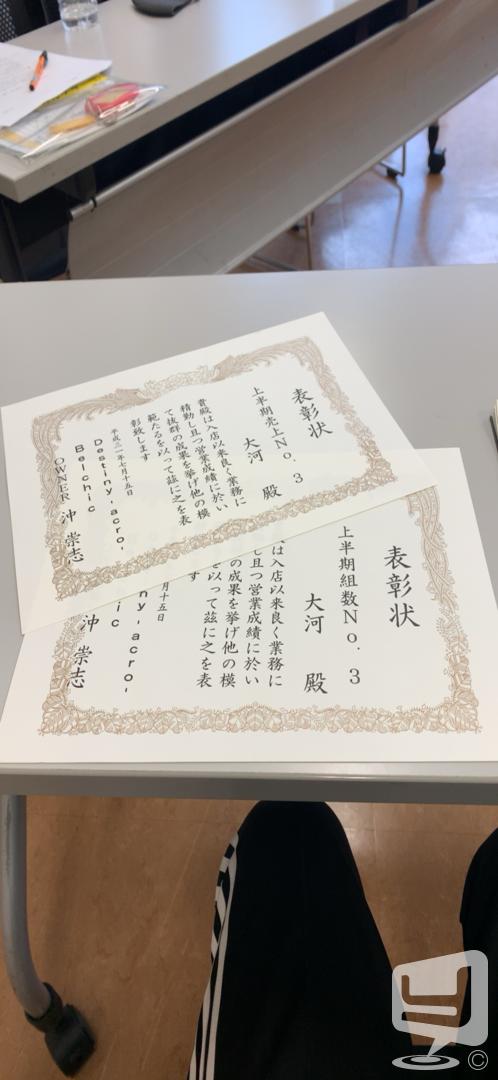 表彰状
上半期売上No.3
大河 殿
貴殿は入店以来良く業務に
精勤し且つ営業成績に於い
て抜群の成果を挙げ他の模
範たるを以って茲に之を表
彰致します
平成三一年七月十五日
Destiny,acro,
Belchic
OWNER 沖 崇志
表彰状
上半期組数No.3
大河 殿
は入店以来良く業務に
し且つ営業成績に於い
の成果を挙げ他の模
を以って茲に之を表
す
月十五日
ny,acro,
ic
沖 崇志
©